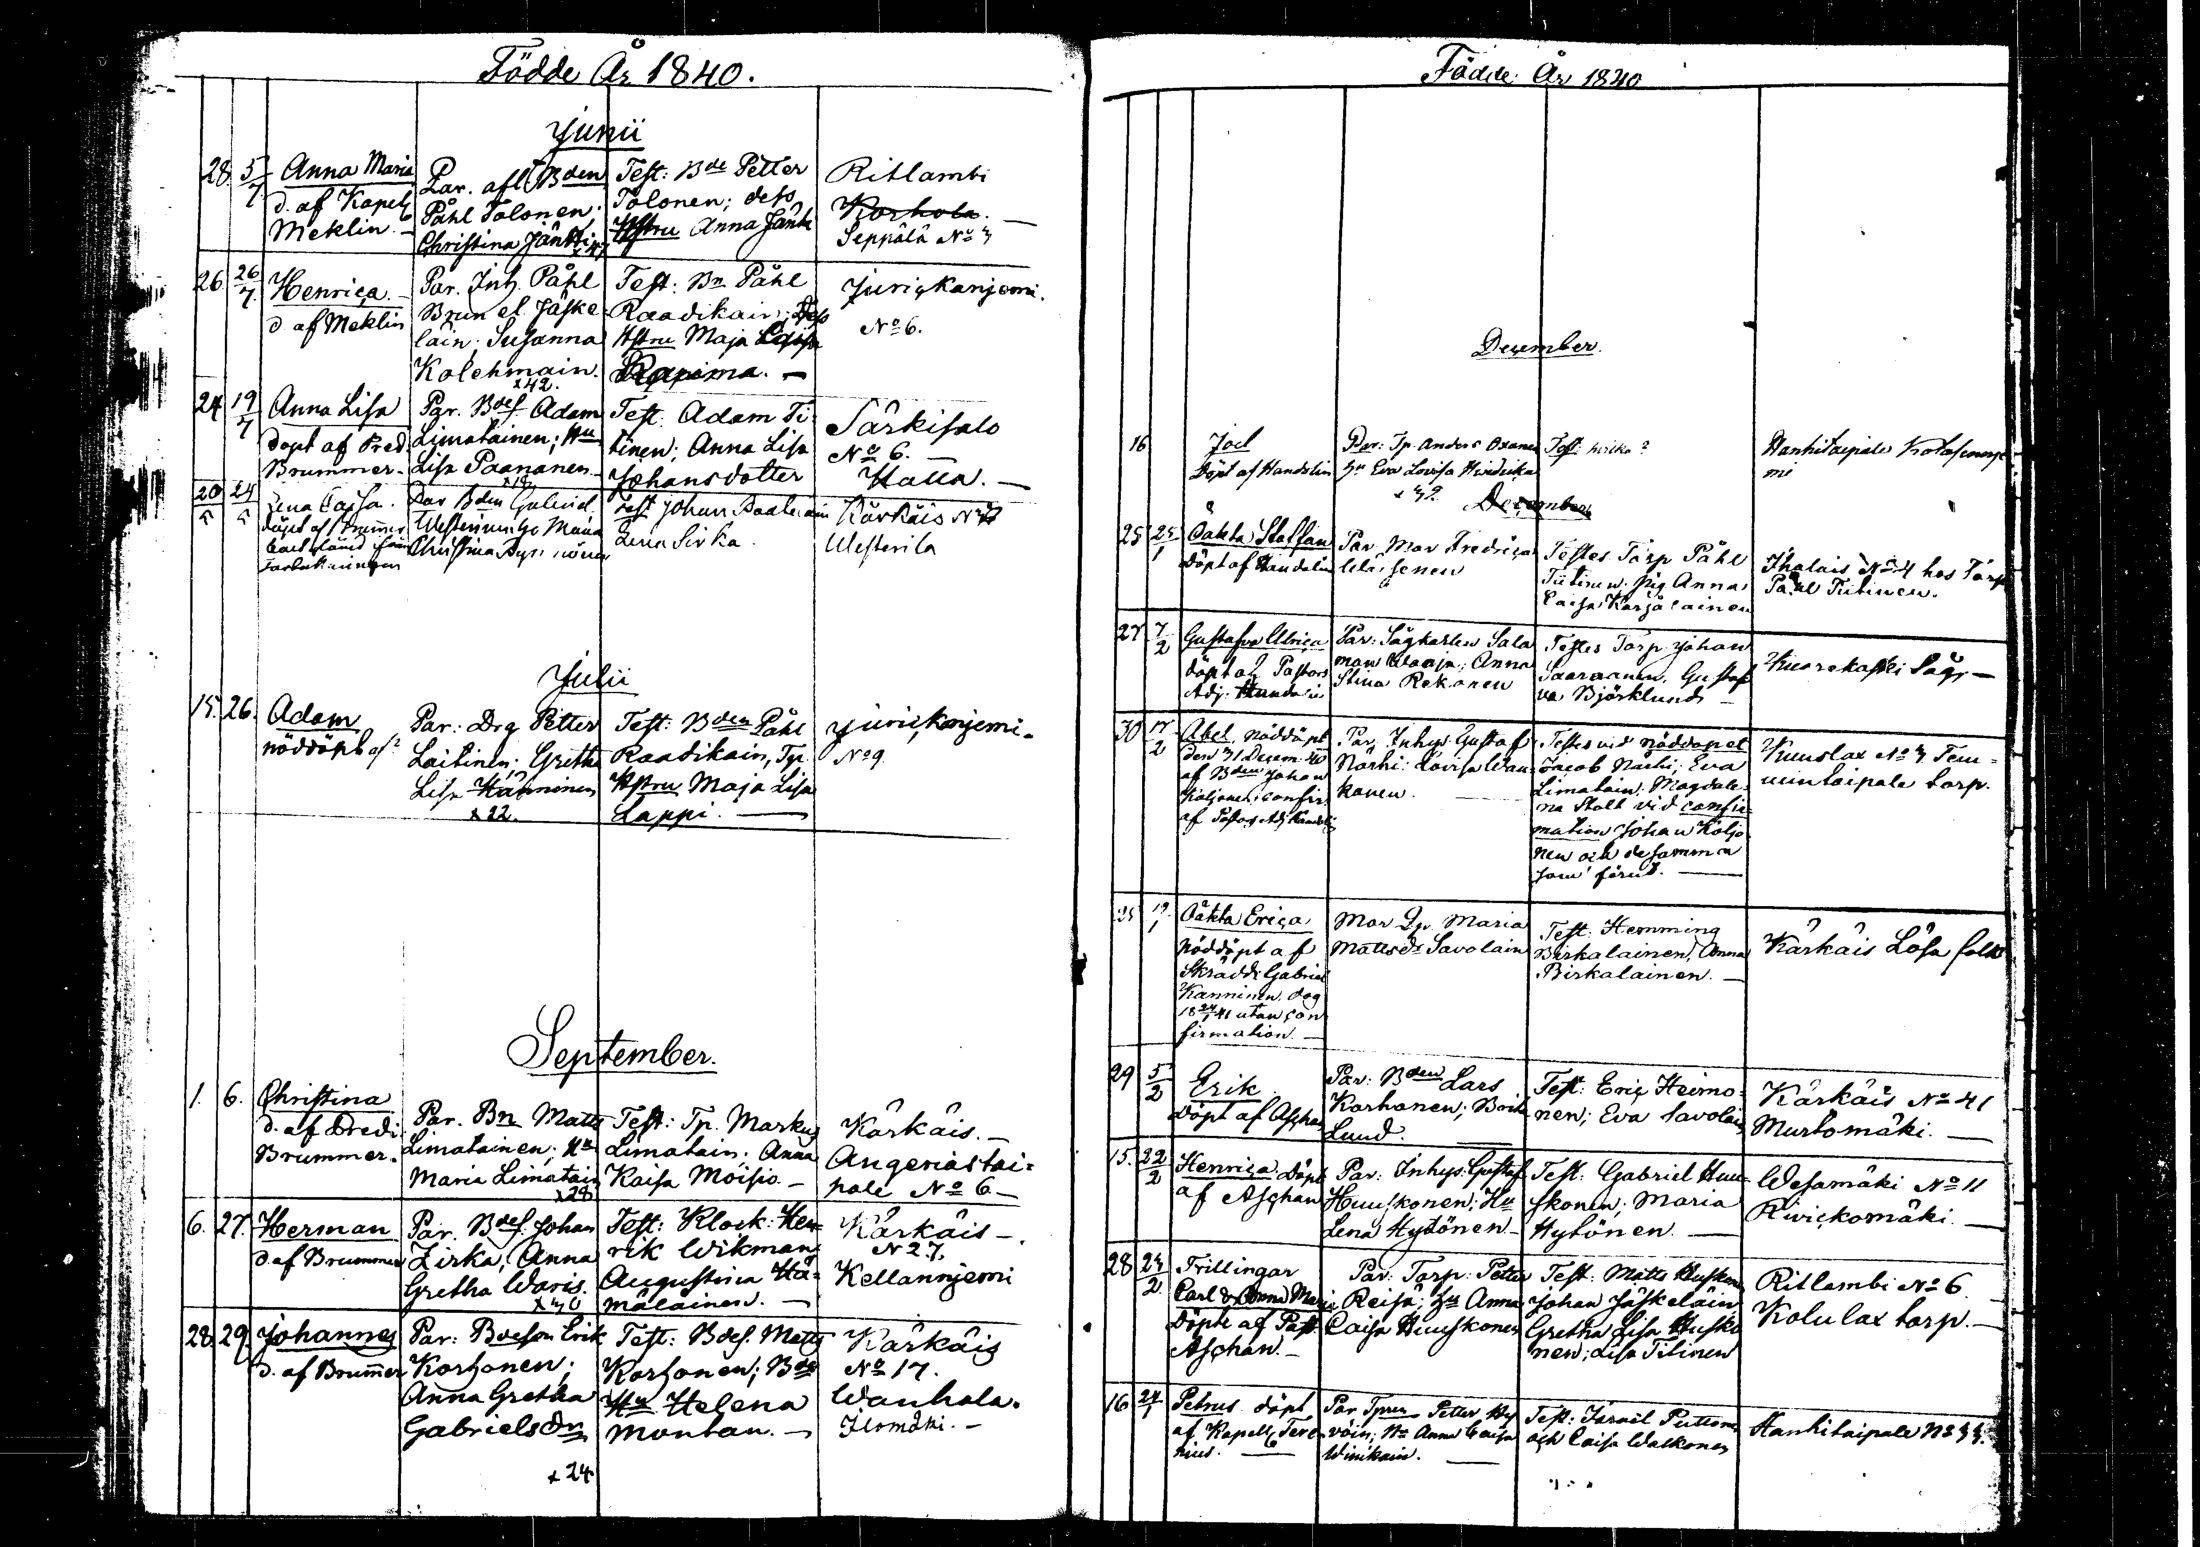 Födde År 1840.
Junii
28. 5/7 Anna Maria
d. af Kapell
Meklin. –
Par. afl. Bden
Påhl Tolonen;
Christina Jäntti
Test: Bde Petter
Tolonen; dess
Hstru Anna Jänti
Ritlambi
Korhola. –
Seppälä No 3
26. 26/7. Henrica. –
d af Meklin
Par. Inh. Påhl
Brun el. Jäske-
läin; Susanna
Kolehmain.
x 42.
Test: Bn Påhl
Raadikain; Dess
Hstru Maja Caisa
Rapima. –
Juriçkanjemi.
No 6.
24 19/7 Anna Lisa
Döpt af Pred.
Brummer.
Par. Bdes. Adam
Limatainen; Hu
Lisa Paananen
Test. Adam Ti-
tinen; Anna Lisa
Johansdotter
Särkisalo
No 6. –
Hatta. –
20/5 24/5 Lena Caisa.
döpt af Brummer
Par Bden Gabriel
Christina
Test Johan
Lena Sirka.
Kärkäis No
Westerila
Julii
15. 26. Adam
nöddöpt af?
Par: Drg Petter
Laitinen; Gretha
Lisa Hänninen
x 22.
Test: Bden Påhl
Raadikain, Tp.
Hstru Maja Lisa
Lappi. –
Juriçkanjemi.
No 9.
September.
1. 6. Christina
d. af Predi.
Brummer.
Par. Bn Matts
Limatainen; Hu
Maria Limatain
x 28
Test: Tp. Markus
Limatain. Anna
Kaisa Moisio. –
Kärkäis. –
Angeriastai=
pale No 6 –
6. 27. Herman
d. af Brummer
Par. Bdes. Johan
Zirka, Anna
Gretha Waris.
x 30
Test: Klock. Hen=
rik Wikman
Augustina Hä=
mäläinen. –
Kärkäis –.
N 27.
Kellannjemi
28. 29. Johannes
d. af Brummer
Par: Bdeson Erik
Korhonen;
Anna Gretha
Gabrielsdr
x 24
Test: Bdes. Matts
Korhonen; Bds
Hu Helena
Montan. –
Kärkäis
No 17.
Wanhala.
Ilomäki. –
Födde År 1840
December.
16 Joel
Döpt af Handolin
Par: Tp. Anders Oxanen
Hu Eva Lovisa Hinduka
x 32.
Test: hvilka?
Hanhitaipale Kotasemmje
mi
December
25 25/1 Oäkta Staffan
Döpt af Handolin
Par Mor Fredriça
Testes Torp Påhl
Tiitinen. pig Anna
Caisa Karjalainen
Ihalais No 4 hos Torp
Påhl Tiitinen.
27 7/2 Gustafva Ulriça
döpt af Pastors
Adj. Handolin
Par: Sågkarlen Salo
mon Waaja; Anna
Stina Rekonen
Testes Torp. Johan
Saaranen, Gustaf
va Björklund –
Kuorekoski Såg. –
30 17/2 Abel, nöddöpt
den 31 Decem. 40
af Bden Johan
Koljonen; confir.
af Pastors Adj. Handolin
Par. Inhys: Gustaf
Närhi: Lovisa Wan-
kanen. –
Testes vid nöddopet
Jacob Närhi; Eva
Limatain; Magdale-
na Stolt vid confir-
mation Johan Koljo
nen och desamma
som förut. –
Kuuslax No 3 Tem=
mintaipale torp.
25 19/1 Oäkta Eriça
nöddöpt af
Skrädd. Gabriel
Kanninen. dog
18 24/1 41 utan con
firmation. –
Mor Lp. Maria
Mattsdr Savolain
Test: Hemming
Birkalainen, Anna
Birkalainen. –
Kärkäis Lösa folk
29 5/2 Erik
Döpt af Aschan
Par: Bden Lars
Korhonen; Brit
Lund. –
Test: Eriç Heimo=
nen; Eva Savolain
Kärkäis No 41
Murtomäki. –
15. 22/2 Henriça. Döpt
af Aschan
Par: Inhys: Gustaf
Huuskonen; Hu
Lena Hytönen –
Test: Gabriel Huu=
skonen; Maria
Hytönen. –
Wesamäki No 11
Kiviçkomäki. –
28 23/2. Trillingar
Carl & Anna Maria
Döpte af Past.
Aschan. –
Par: Torp: Petter
Reijä; Hu Anna
Caisa Huuskonen
Test: Matts Huskonen
Johan Jäskeläin
Gretha Lisa Husko
nen; Lisa Titinen
Ritlambi No 6
Kolulax torp. –
16 24/1 Petrus döpt
af Kapell. Teren-
nius. –
Par Tpren Petter Hy
vöin; Hu Anna Caisa
Winikain. –
Test: Israil Puttonen
och Caisa Walkonen
Hanhitaipale No 33.